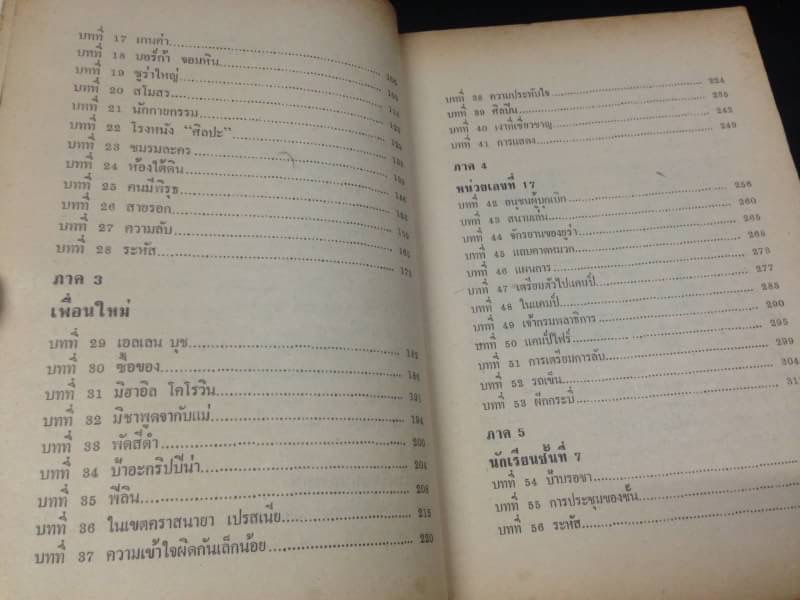 บทที่ 17 เกนค่า
บทที่ 18 บอร์ก้า จอมหิน
บทที่ 19 ชูร่าใหญ่
บทที่ 20 สโมสร
บทที่ 21 นักกายกรรม
บทที่ 22 โรงหนัง “ศิลปะ”
บทที่ 23 ชมรมละคร
บทที่ 24 ห้องใต้ดิน
บทที่ 25 คนมีพิรุธ
บทที่ 26 สายรอก
บทที่ 27 ความลับ
บทที่ 28 ระหัส
ภาค 3
เพื่อนใหม่
บทที่ 29 เอลเลน บุช
บทที่ 30 ซื้อของ
บทที่ 31 มิฮาอิล โคโรวิน 191
บทที่ 32 มิชาพูดจากับแม่ 194
บทที่ 33 พัดสีดำ 200
บทที่ 34 ป้าอะกริปปีน่า 204
บทที่ 35 ฟีลิน 208
บทที่ 36 ในเขตคราสนายา เปรสเนีย 215
บทที่ 37 ความเข้าใจผิดกันเล็กน้อย 220
บทที่ 38 ความประทับใจ 224
บทที่ 39 ศิลปิน 235
บทที่ 40 เจ้าที่เชี่ยวชาญ 242
บทที่ 41 การแสดง 249
ภาค 4
หน่วยเลขที่ 17
บทที่ 42 อนุชนผู้บุกเบิก 256
บทที่ 43 สนามเล่น 260
บทที่ 44 จักรยานของยูร่า 265
บทที่ 45 แถบคาดหมวก 268
บทที่ 46 แผนการ 273
บทที่ 47 เตรียมตัวไปแคมป์ 277
บทที่ 48 ในแคมป์ 285
บทที่ 49 เจ้ากรมพลาธิการ 290
บทที่ 50 แคมป์ไฟร์ 295
บทที่ 51 การเตรียมการลับ 299
บทที่ 52 รถเข็น 304
บทที่ 53 ฝักกระบี่
ภาค 5
นักเรียนชั้นที่ 7
บทที่ 54 ป้าบรอชา
บทที่ 55 การประชุมของชั้น
บทที่ 56 ระหัส